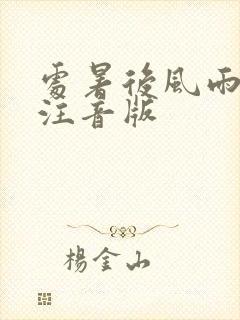 處暑後風雨
注音版
楊金山